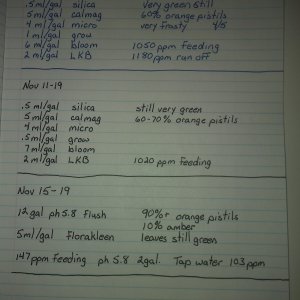 .5 ml/gal silica very green still
5 ml/gal calmag 60% orange pistils
4 ml/gal micro very frosty 4/5
1 ml/gal grow
6 ml/gal bloom 1050 ppm feeding
2 ml/gal LKB 1180 ppm run off
Nov 11-19
.5 ml/gal silica still very green
5 ml/gal calmag 60-70% orange pistils
4 ml/gal micro
.5 ml/gal grow
7 ml/gal bloom
2 ml/gal LKB 1020 ppm feeding
Nov 15-19
12 gal ph 5.8 flush 90%+ orange pistils
10% amber
5ml/gal florakleen leaves still green
147ppm feeding ph 5.8 2gal. Tap water 103 ppm